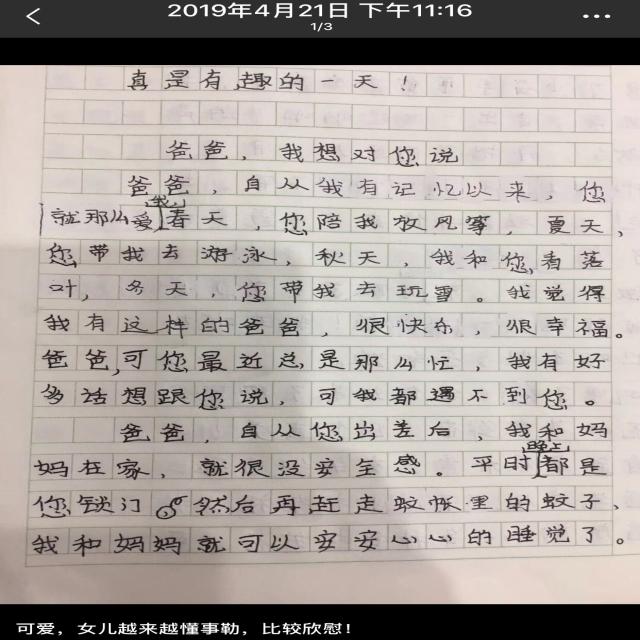 2019年4月21日 下午11:16
1/3
真是有趣的一天！
爸爸，我想对您说
爸爸，自从我有记忆以来，您
就那么爱我！春天，您陪我放风筝，夏天，
您带我去游泳，秋天，我和您看落
叶，冬天，您带我去玩雪。我觉得
我有这样的爸爸，很快乐，很幸福。
爸爸，可您最近总是那么忙，我有好
多话想跟您说，可我都遇不到您。
爸爸，自从您出差后，我和妈
妈在家，就很没安全感。平时晚上都是
您锁门，然后再赶走蚊帐里的蚊子，
我和妈妈就可以安安心心的睡觉了。
可爱，女儿越来越懂事勒，比较欣慰！